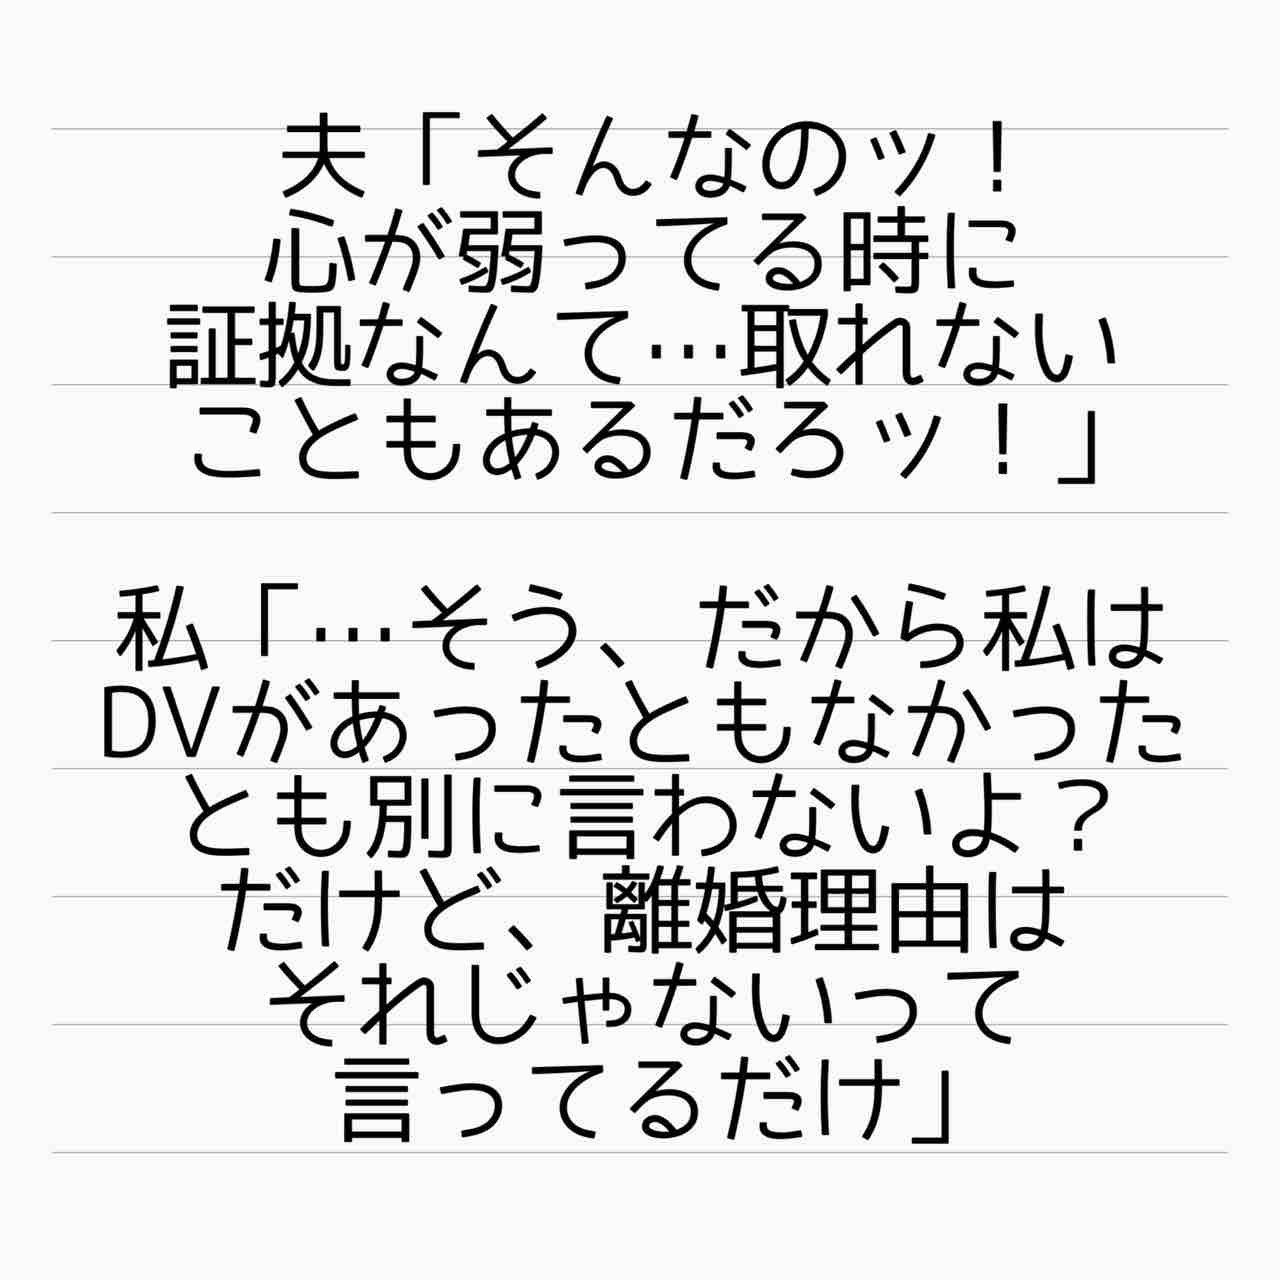 夫「そんなのッ！
心が弱ってる時に
証拠なんて…取れない
こともあるだろッ！」
私「…そう、だから私は
DVがあったともなかった
とも別に言わないよ？
だけど、離婚理由は
それじゃないって
言ってるだけ」